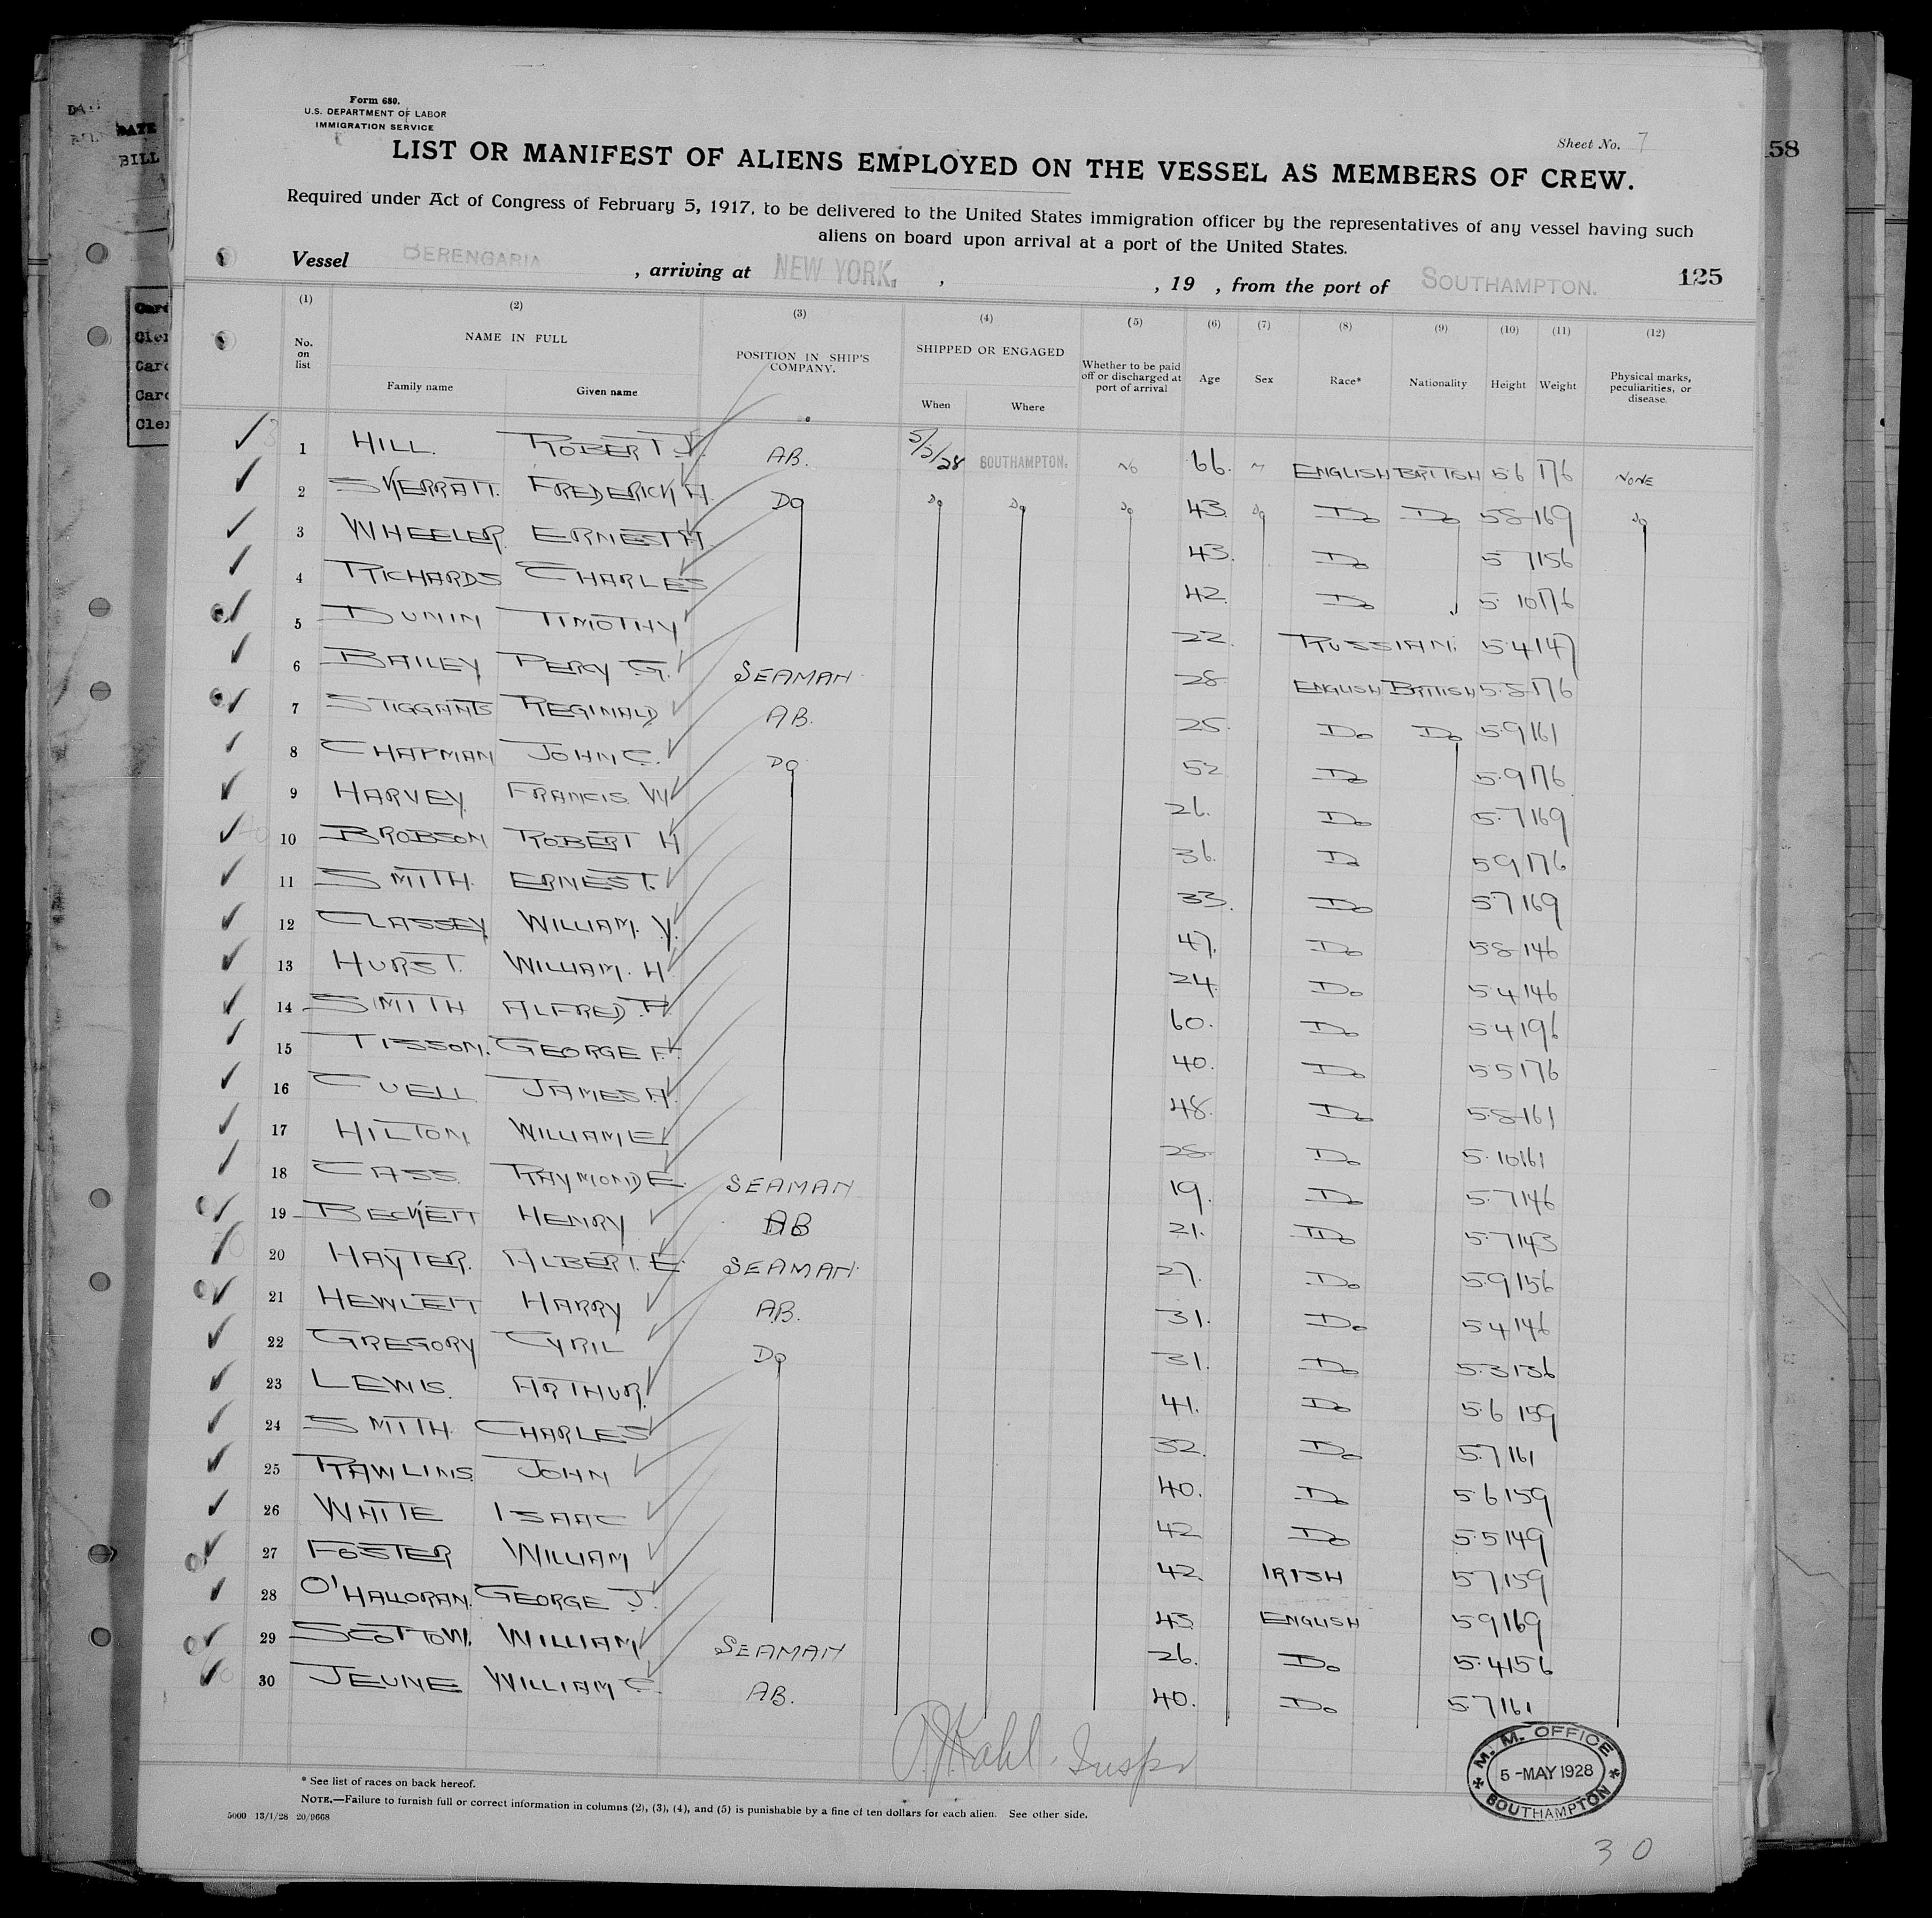 Form 680.
U.S. DEPARTMENT OF LABOR
IMMIGRATION SERVICE
Sheet No. 7
58
LIST OR MANIFEST OF ALIENS EMPLOYED ON THE VESSEL AS MEMBERS OF CREW.
Required under Act of Congress of February 5, 1917, to be delivered to the United States immigration officer by the representatives of any vessel having such
aliens on board upon arrival at a port of the United States.
Vessel BERENGARIA , arriving at NEW YORK. , , 19 , from the port of SOUTHAMPTON. 125
(1) (2) (3) (4) (5) (6) (7) (8) (9) (10) (11) (12)
No. on list NAME IN FULL Family name Given name POSITION IN SHIP'S COMPANY. SHIPPED OR ENGAGED When Where Whether to be paid off or discharged at port of arrival Age Sex Race* Nationality Height Weight Physical marks, peculiarities, or disease
1 HILL. ROBERT J. AB. 5/5/28 SOUTHAMPTON. No 66. M ENGLISH BRITISH 5 6 176 NONE
2 SKERRATT. FREDERICK A. Do Do Do Do 43. Do Do Do 5 8 169 Do
3 WHEELER. ERNEST A. 43. Do 5 7 156
4 RICHARDS CHARLES 42. Do 5. 10 176
5 DUNIN TIMOTHY 22. RUSSIAN. 5.4 147
6 BAILEY PERCY G. SEAMAN 28. ENGLISH BRITISH 5.8 176
7 STIGGANTS REGINALD AB. 25. Do Do 5.9 161
8 CHAPMAN JOHN C. Do 52 Do 5.9 176
9 HARVEY. FRANCIS W 26. Do 5.7 169
10 BROBSON ROBERT H 36. Do 5 9 176
11 SMITH. ERNEST. 33. Do 5 7 169
12 CLASSEY WILLIAM. V. 47. Do 5 8 146
13 HURST. WILLIAM. H 24. Do 5 4 146
14 SMITH ALFRED. 60. Do 5 4 196
15 TISSOM. GEORGE F. 40. Do 5 5 176
16 CUELL JAMES A. 48. Do 5.8 161
17 HILTON WILLIAM E 28. Do 5. 10 161
18 CASS. RAYMOND E. SEAMAN 19. Do 5.7 146
19 BECKETT HENRY AB 21. Do 5.7 143
20 HAYTER. ALBERT. E. SEAMAN. 27. Do 5.9 156
21 HEWLETT HARRY AB. 31. Do 5 4 146
22 GREGORY CYRIL Do 31. Do 5.3 136
23 LEWIS. ARTHUR. 41. Do 5.6 159
24 SMITH CHARLES 32. Do 5.7 161
25 RAWLINS JOHN 40. Do 5 6 159
26 WHITE ISAAC 42 Do 5.5 149
27 FOSTER WILLIAM 42. IRISH 5 7 159
28 O'HALLORAN. GEORGE J. 43. ENGLISH 5 9 169
29 SCOTTOW. WILLIAM SEAMAN 26. Do 5.4 156
30 JEUNE WILLIAM C. AB. 40. Do 5.7 161
Kahl. Inspr
M. M. OFFICE
5 -MAY 1928
SOUTHAMPTON
* See list of races on back hereof.
NOTE.—Failure to furnish full or correct information in columns (2), (3), (4), and (5) is punishable by a fine of ten dollars for each alien. See other side.
5000 13/1/28 20/9668
30